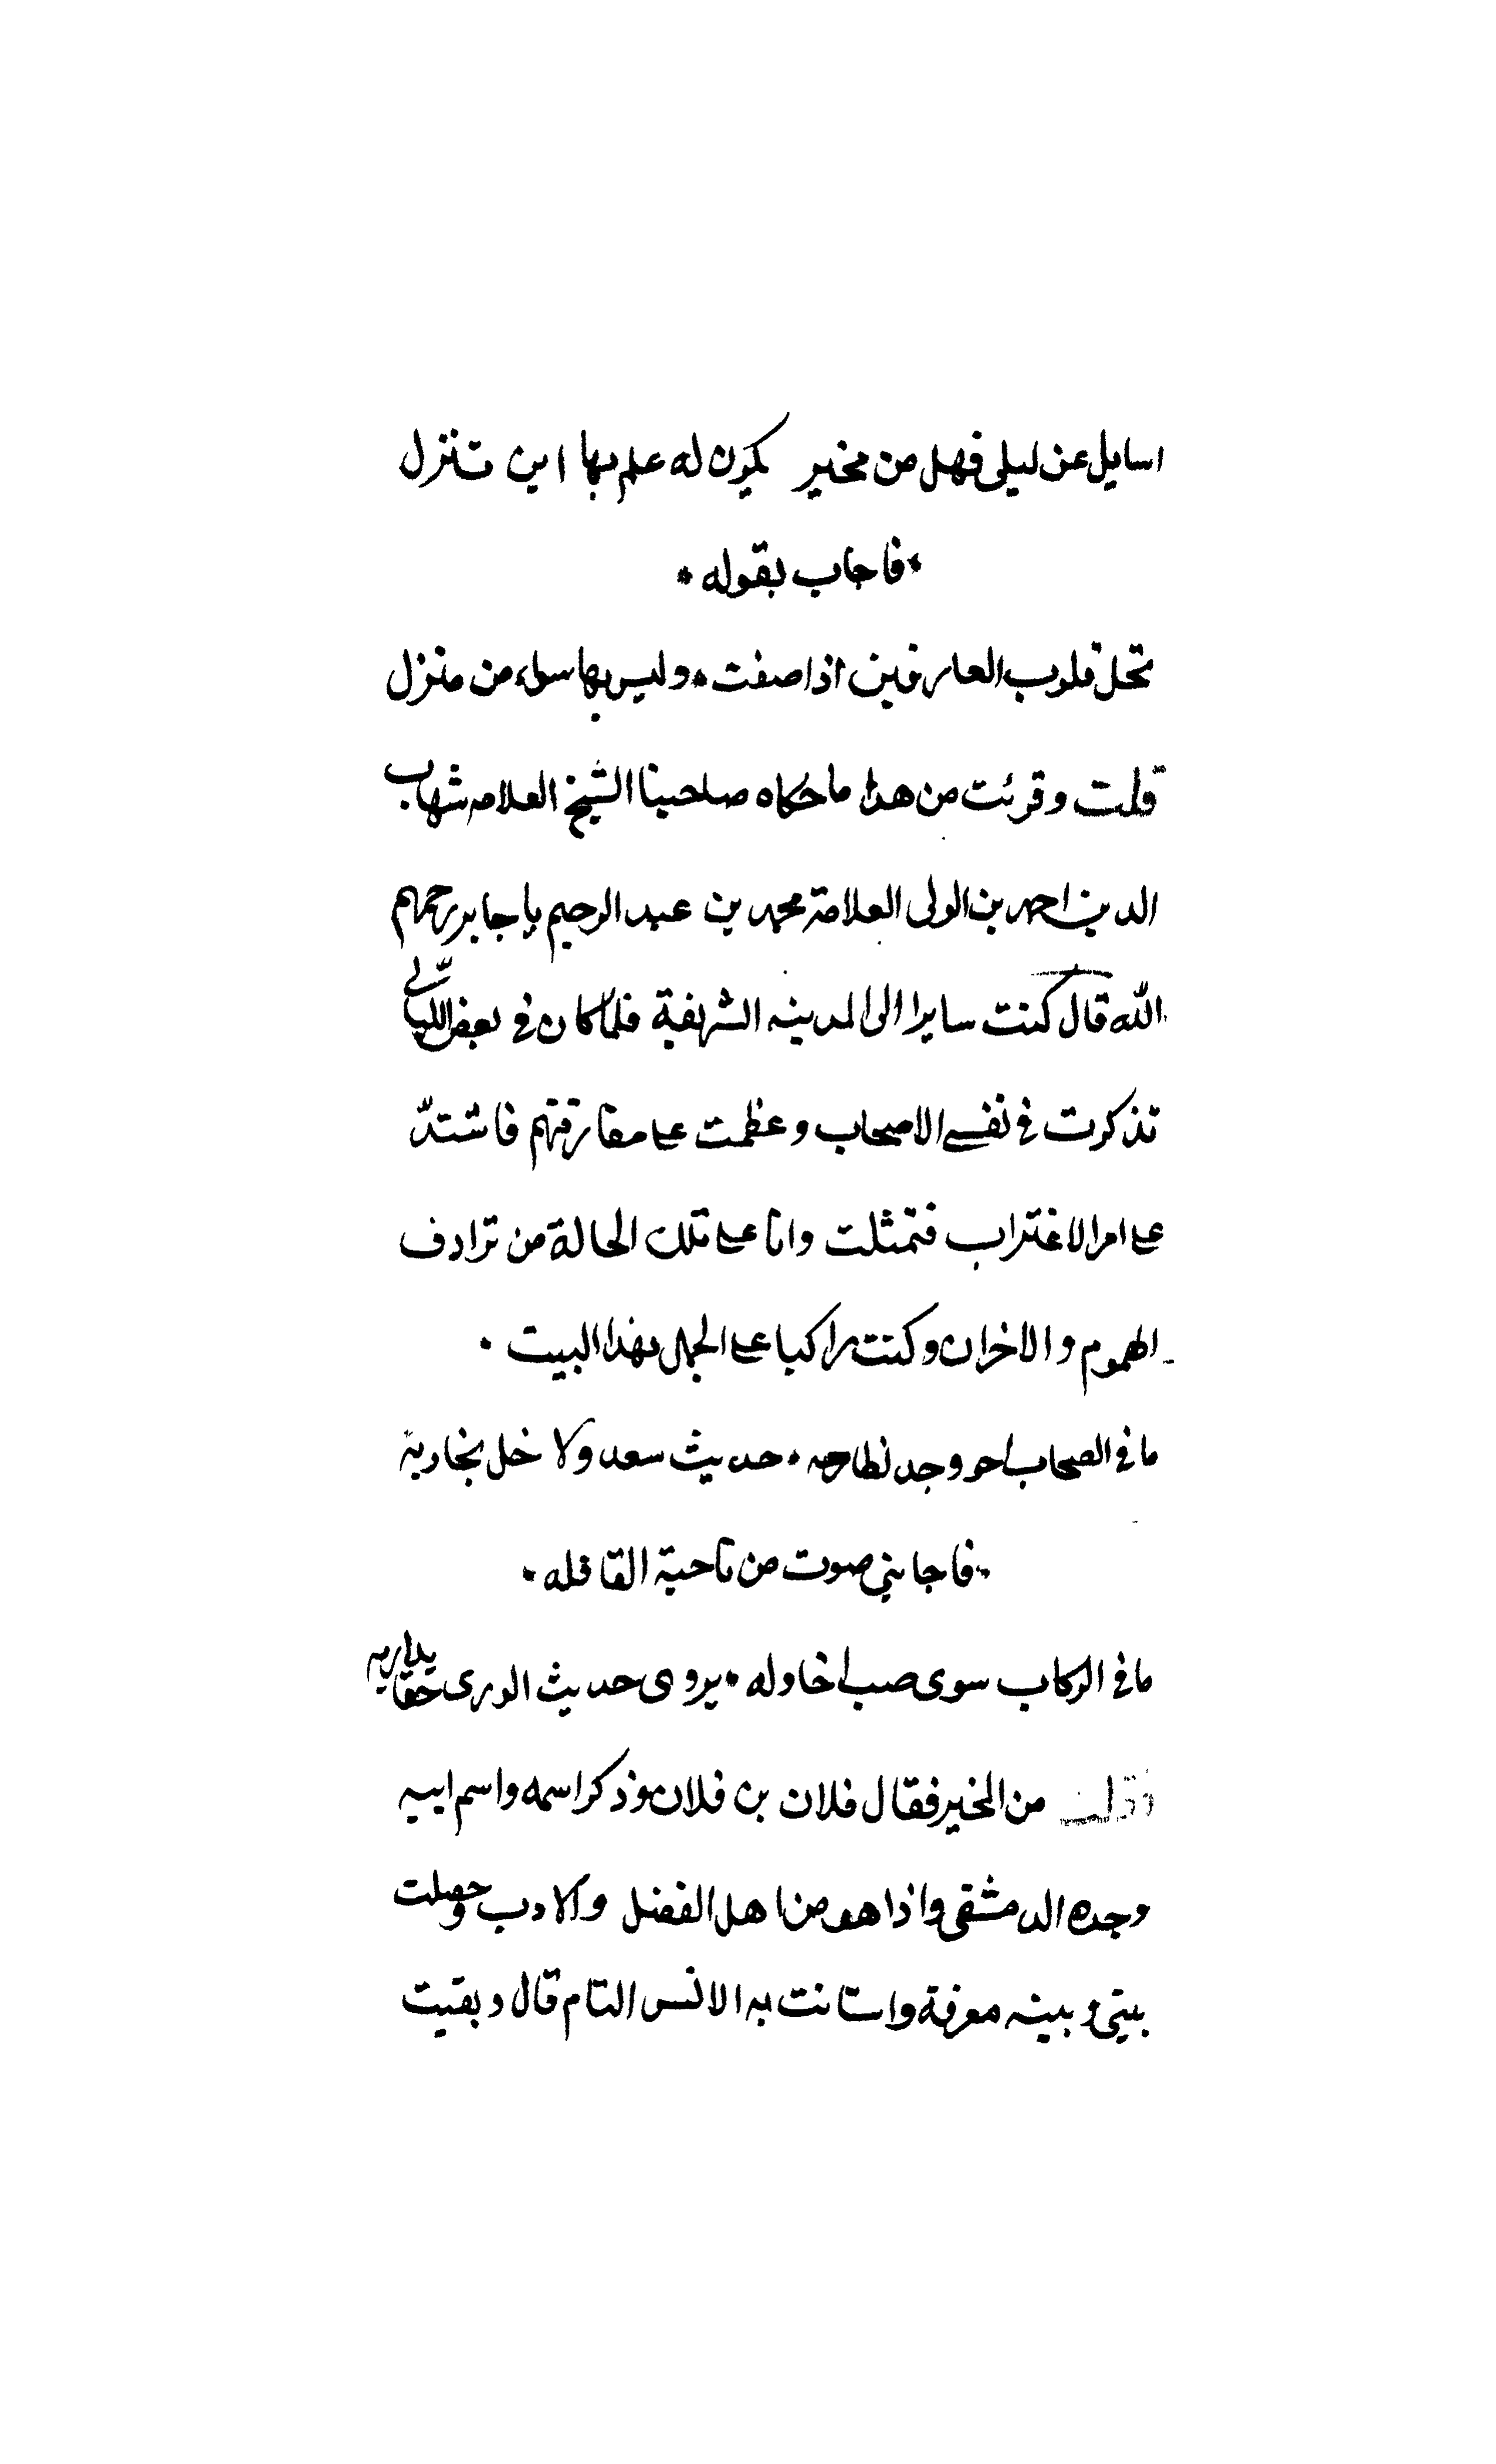 اسايل عن ليلى فهل من مخبر يكون له علم بها اين تنزل
*فاجاب بقوله*
تحل قلوب العارفين اذا صفت * وليس بها سواء من منزل
قلت وقرئت من هذا ما حكاه صاحبنا الشيخ العلامه شهاب
الدين احمد بن الولى العلامة محمد بن عبد الرحيم باجابر رحمهم
الله قال كنت سايرا الى المدينه الشريفة فلما كان في بعض الليالي
تذكرت في نفسي الاصحاب وعظمت على مفارقتهم فاشتدّ
على امر الاغتراب فتمثلت وانا على تلك الحالة من ترادف
الهموم والاخزان وكنت راكبا على الجمال بهذا البيت ٠
ما في الصحاب اخو وجد نطارحه ٠ حديث سعد ولا خل نجاريه
٠فاجابني صوت من ناحية القافله٠
ما في الركاب سوى صب اخا وله * يروى حديث الورى حقا يداريه
فقلت من المخبر فقال فلان بن فلان وذكر اسمه واسم ابيه
وجده الدمشقي واذا هو من اهل الفضل والادب وحصلت
بيني وبينه معرفة واستانت به الانس التام قال وبقيت